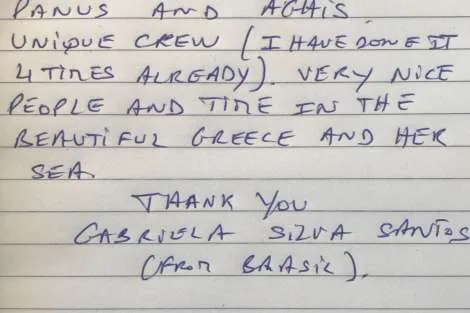 PANUS AND AGHIS
UNIQUE CREW (I HAVE DONE IT
4 TIMES ALREADY). VERY NICE
PEOPLE AND TIME IN THE
BEAUTIFUL GREECE AND HER
SEA.
THANK YOU
GABRIELA SILVA SANTOS
(FROM BRASIL).